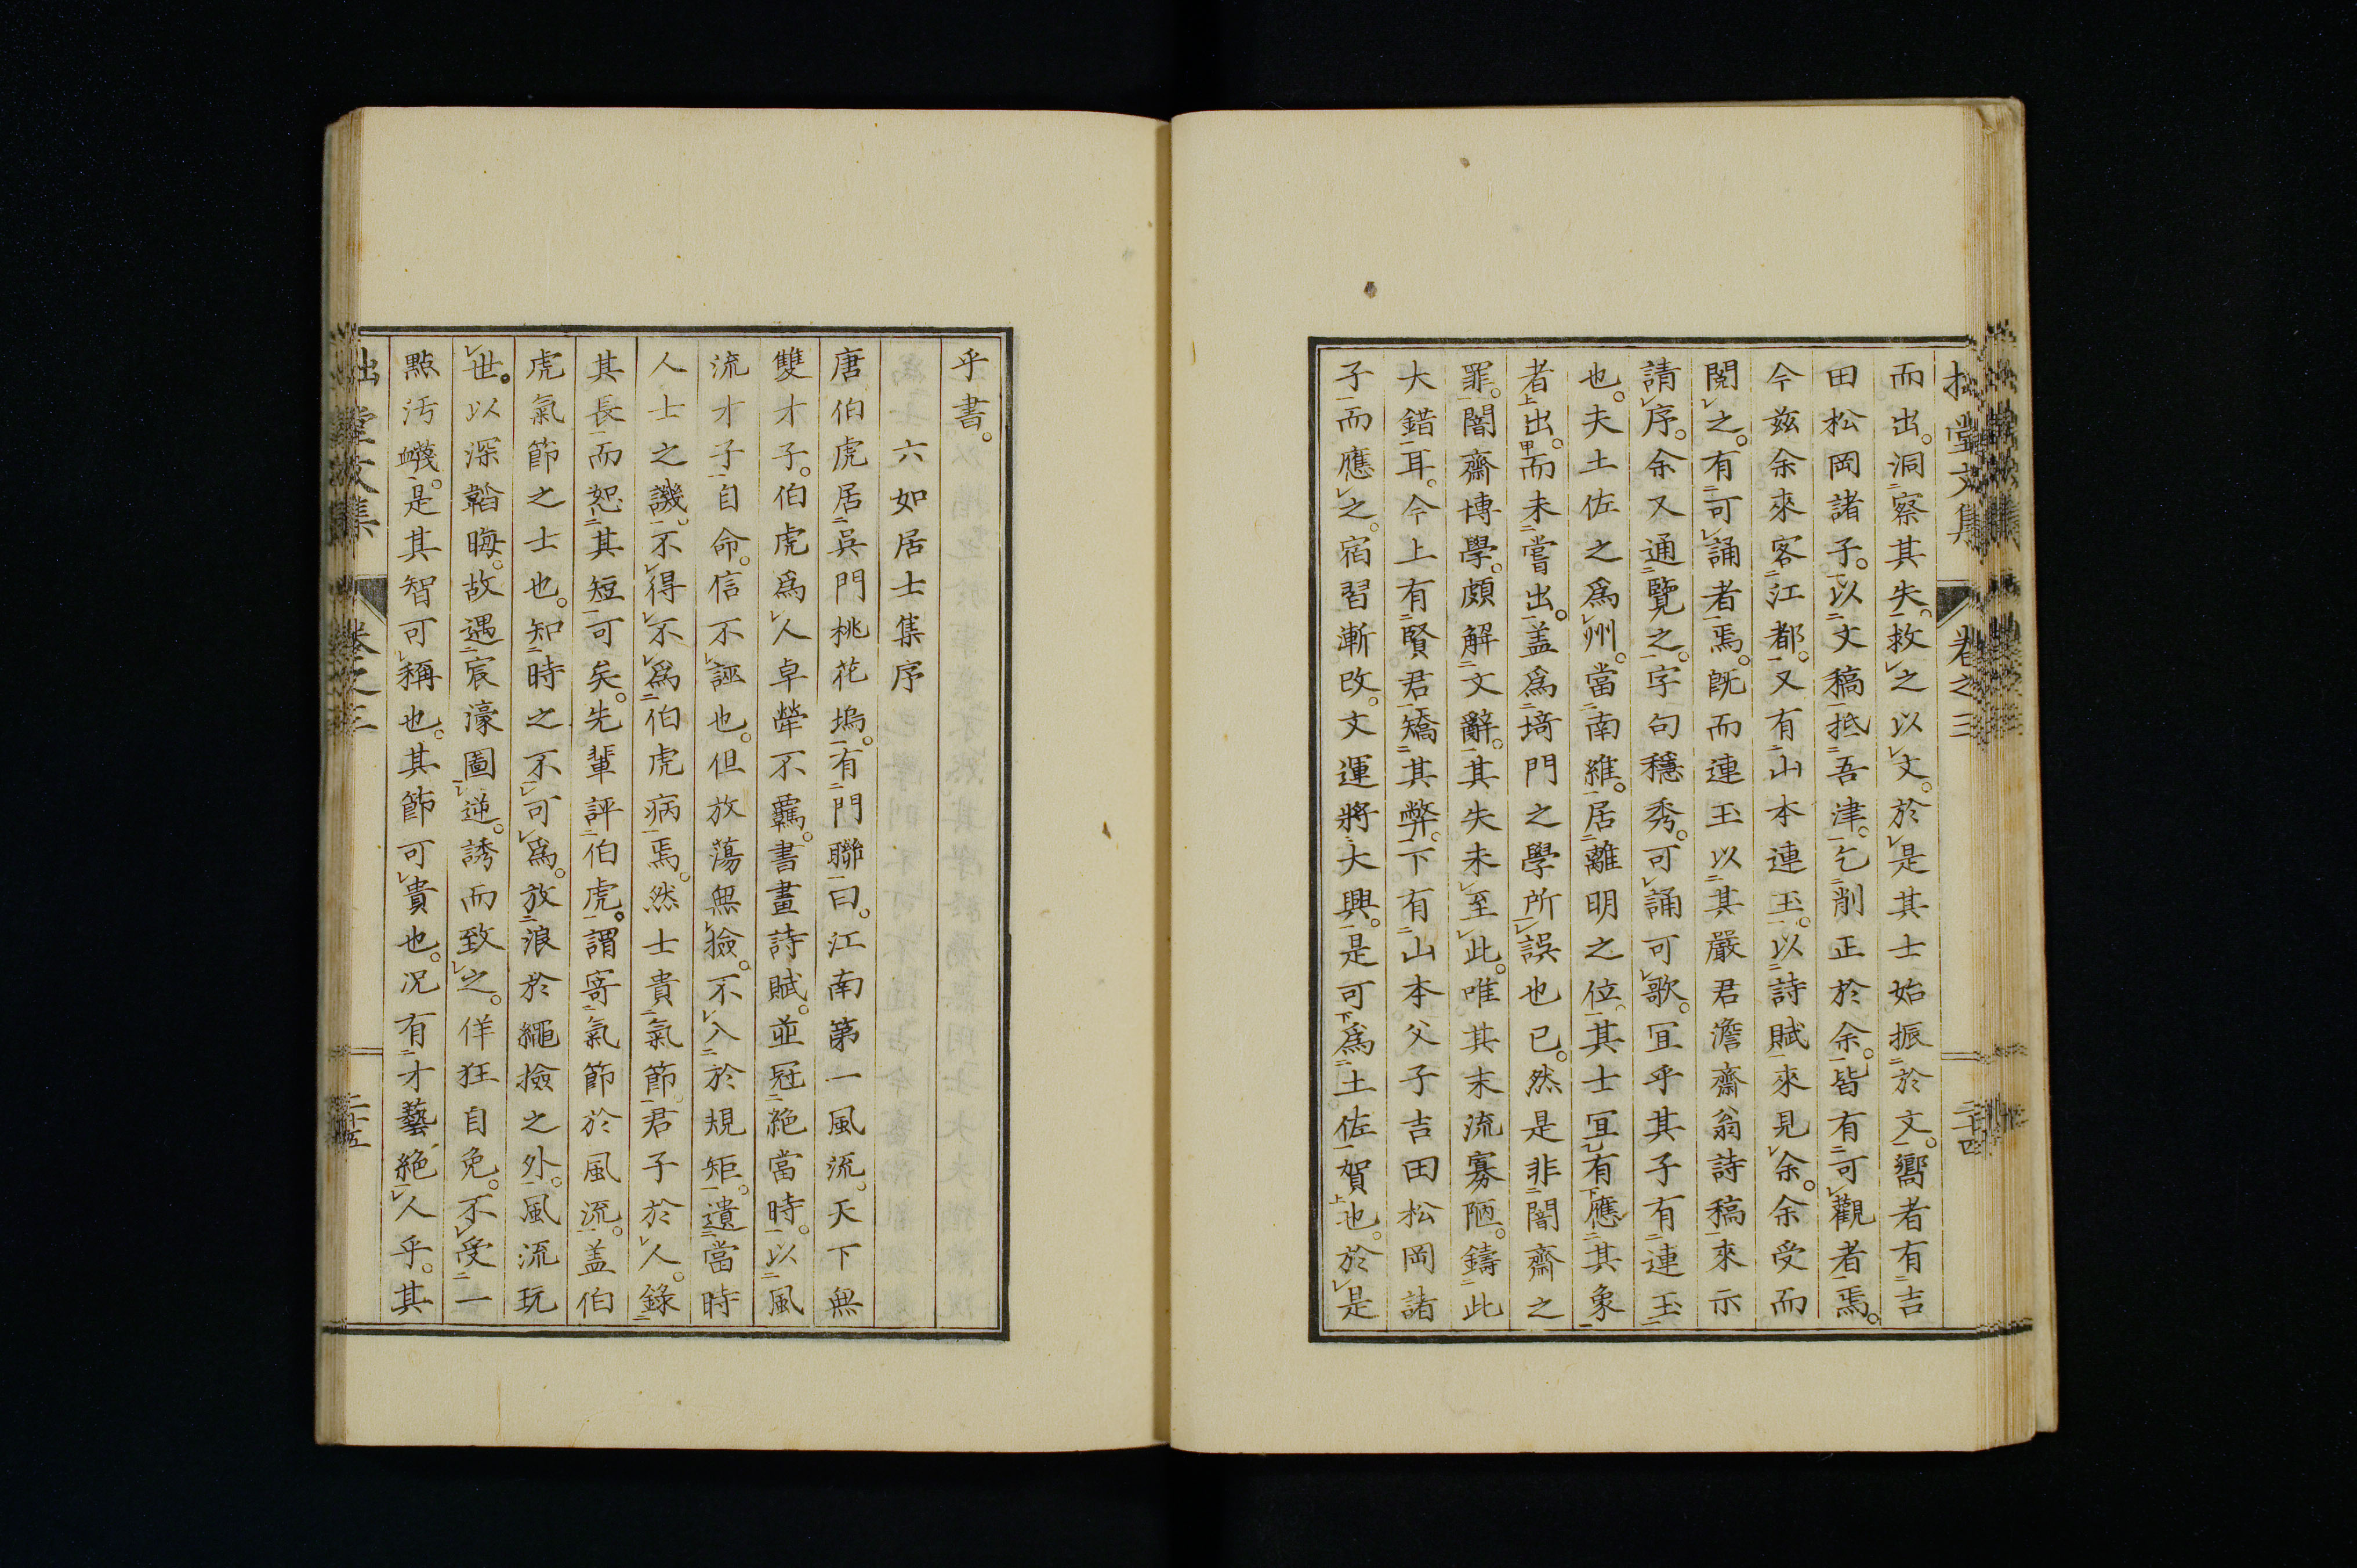 而出。洞察其失。救之以文。於是其士始振於文。嚮者有吉
田松岡諸子。以文稿抵吾津。乞削正於余。皆有可觀者焉。
今兹余來客江都。又有山本連玉。以詩賦來見余。余受而
閱之。有可誦者焉。既而連玉以其嚴君澹齋翁詩稿來示
請序。余又通覽之。字句穩秀。可誦可歌。宜乎其子有連玉
也。夫土佐之爲州。當南維。居離明之位。其士宜有應其象
者出。而未嘗出。盖爲埼門之學所誤也已。然是非闇齋之
罪。闇齋博學。頗解文辭。其失未至此。唯其末流寡陋。鑄此
大錯耳。今上有賢君矯其弊。下有山本父子吉田松岡諸
子而應之。宿習漸改。文運將大興。是可爲土佐賀也。於是
乎書。
六如居士集序
唐伯虎居吳門桃花塢。有門聯曰。江南第一風流。天下無
雙才子。伯虎爲人卓犖不羈。書畫詩賦。並冠絶當時。以風
流才子自命。信不誣也。但放蕩無撿。不入於規矩。遺當時
人士之譏。不得不爲伯虎病焉。然士貴氣節。君子於人。錄
其長而恕其短可矣。先輩評伯虎。謂寄氣節於風流。盖伯
虎氣節之士也。知時之不可爲。放浪於繩撿之外。風流玩
世。以深韜晦。故遇宸濠圖逆。誘而致之。佯狂自免。不受一
點汚衊。是其智可稱也。其節可貴也。况有才藝絶人乎。其
堂文集 卷之三 二十四
堂文集 卷之三 二十五